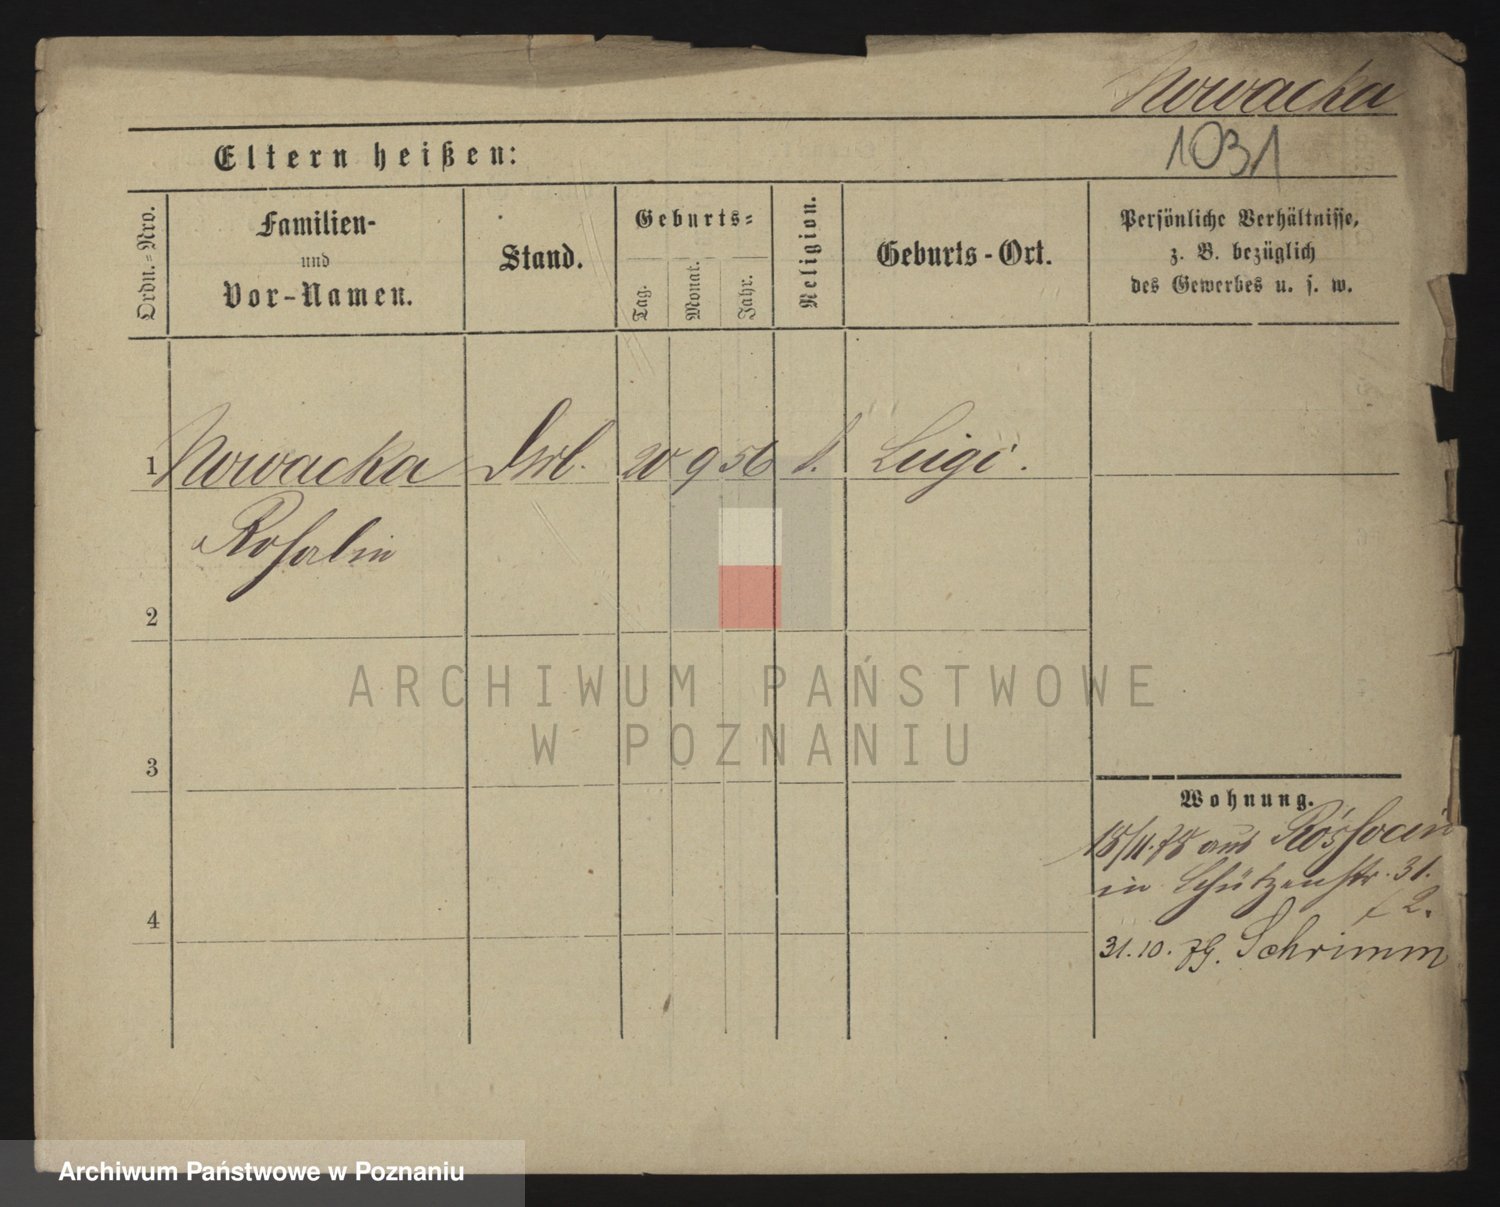 Nowacka
1031
Eltern heißen:
Ordn.-Nro.
Familien-
und
Vor-Namen.
Stand.
Geburts-
Tag.
Monat.
Jahr.
Religion.
Geburts-Ort.
Persönliche Verhältnisse,
z. B. bezüglich
des Gewerbes u. s. w.
1 Nowacka 20 9 56
Rosalie
2
3
4
Wohnung.
aus
in Schützenstr. 31.
31.10.79. Schrimm
ARCHIWUM PAŃSTWOWE
W POZNANIU
Archiwum Państwowe w Poznaniu